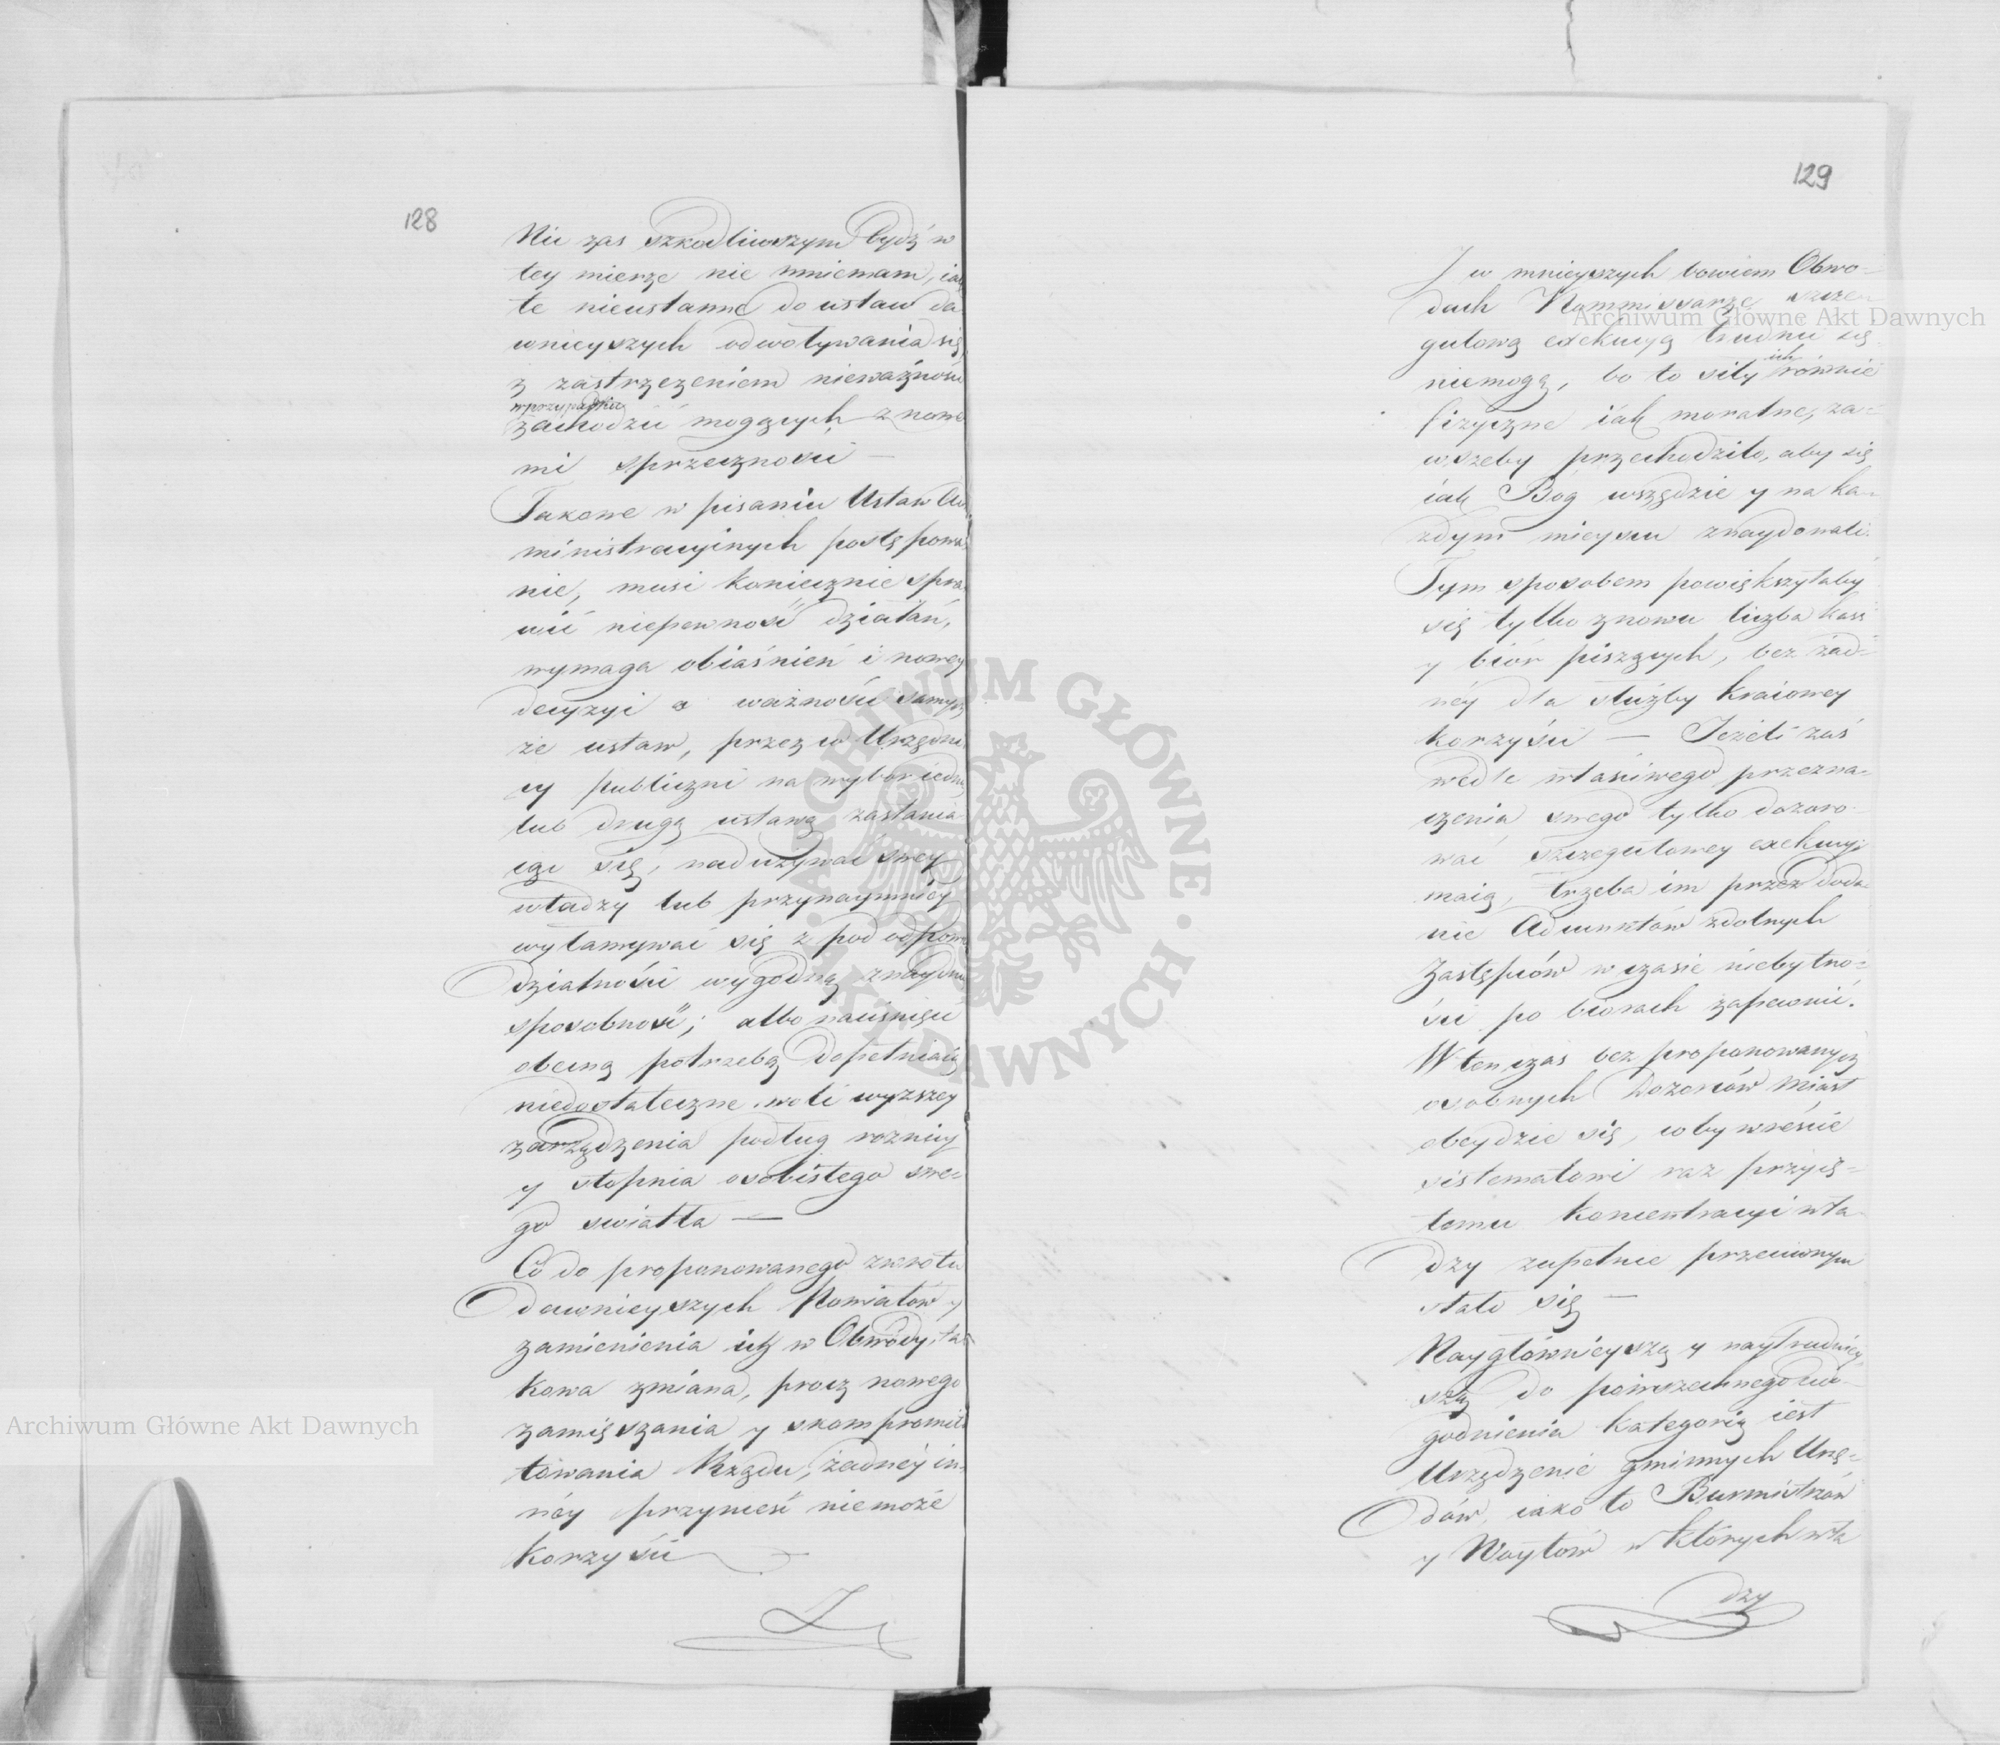 128
Nic zas szkodliwszym bydź w
tey mierze nie mniemam, iak
te nieustanne do ustaw da
wnieyszych odwoływania się
z zastrzeżeniem nieważności
w przypadku
zachodzić mogących z nowe
mi sprzeczności —
Takowe w pisaniu Ustaw Ad
ministracyjnych postępowa
nie, musi koniecznie spra
wić niepewność działań,
wymaga obiaśnień i nowey
decyzyi o ważności samych
że ustaw, przez co Urzędni
cy publiczni na wybór iedną
lub drugą ustawą zasłania
iąc się, nadużywać swey
władzy lub przynaymniey
wyłamywać się z pod odpowie
dzialności wygodną znayduią
sposobność; albo naciśnięci
obecną potrzebą dopełniaią
niedostateczne woli wyzszey
zarządzenia podług roznicy
y stopnia osobistego swe-
go swiatła —
Co do proponowanego zwrotu
dawnieyszych Powiatów y
zamienienia ich w Obwody, ta
kowa zmiana, procz nowego
zamięszania y skompromit
towania Rządu, żadnéy in
néy przynieść niemoże
korzyści
I
129
I w mnieyszych bowiem Obwo-
dach Kommissarze szcze
gulową exekucyą trudnić się
niemogą, bo to siły ich równie
fizyczne iak moralne, za-
wszeby przechodziło, aby się
iak Bóg wszędzie y na ka-
żdym mieyscu znaydowali.
Tym sposobem powiększyłaby
się tylko znowu liczba kass
y biór piszących, bez żad-
néy dla służby kraiowey
korzyści — Jeżeli zaś
wedle właściwego przezna-
czenia swego tylko dozoro-
wać szczegulowey exekucyi
maią, trzeba im przez doda-
nie Adiunktów zdolnych
Zastępców w czasie niebytno-
ści po biorach zapewnić.
W ten czas bez proponowanych
osobnych Dozorców miast
obeydzie się, coby wreście
sistematowi raz przyię-
temu koncentracyi wła-
dzy zupełnie przeciwnym
stało się —
Naygłównieyszą y naytrudniey
szą do powszechnego udo-
godnienia kategorią iest
Urządzenie gminnych Urzę-
dów, iako to Burmistrzów
y Woytów w których wła
dzy
Archiwum Główne Akt Dawnych
Archiwum Główne Akt Dawnych
ARCHIWUM GŁÓWNE AKT DAWNYCH